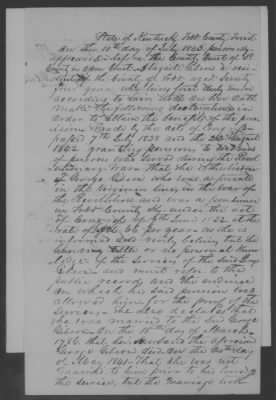 State of Kentucky Todd County Towit
On this 10th day of July 1843. personally
appeared before the County Court of sd
County in open Court Abigail Gibson a resi-
dent of the County of Todd aged Seventy
four years who being first duly sworn
according to Law doth on her Oath
make the following declaration in
Order to Obtain the benefits of the pro-
vision Made by the acts of Congress
passed 7th July 1838 and the 23d August
1842 granting pensions to widows
of persons who served during the Revol-
utionary war that the
George Gibson who was a private
in the Virginia line, in the war of
the Revolution and was a pensioner
in Todd County Ky under the act
of Congress of 7th June 1832 at the
rate of per year as she is
informed and verily believes that the
or his person at the
of the services of the Said George
Gibson and must refer to the
public records and the evidence
on which the Said pension was
allowed him for the proof of the
Services. She also declares that
she was married to the Said George
Gibson On the 15th day of March
1786. that her husband the aforesaid
George Gibson died On the 20th day
of May 1841. that she was not
married to him prior to his leaving
the service, but the marriage took